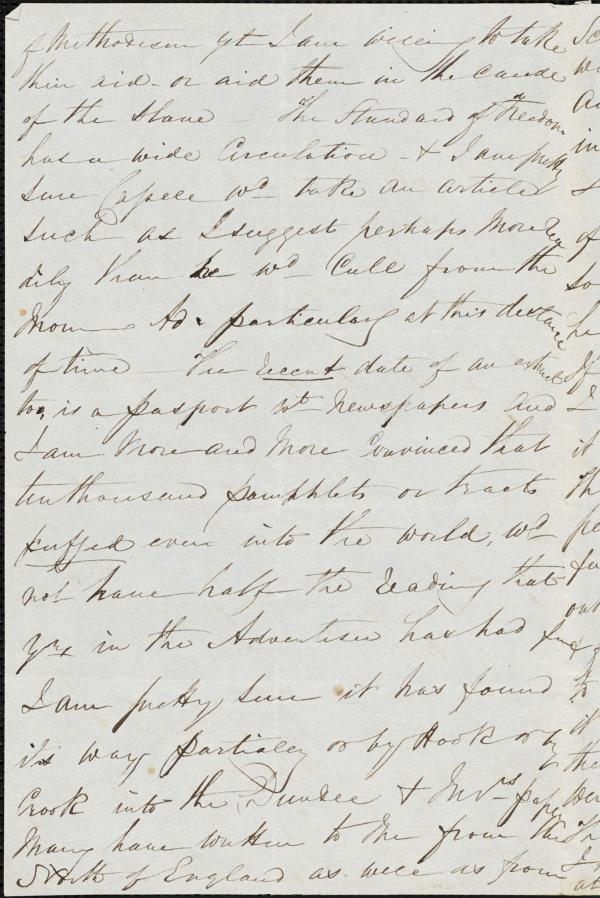 of Methodism yet I am willing to take
their aid - or aid them in the cause
of the Slave - The Standard of Freedom
has a wide Circulation - & I am pretty
sure Capell wd take an article
such as I suggest perhaps more rea
dily than he wd Cull from the
Morn Ad. particularly at this distance
of time - The recent date of an extract
too, is a pasport wt Newspapers and
I am more and more Convinced that
ten thousand pamphlets or tracts
puffed even into the world, wd
not have half the reading that
yrs in the Advertiser has had for
I am pretty sure it has found
its way partially or by Hook or by
Crook into the Dundee & Invrs paper
Many have written to me from the
North of England as well as from